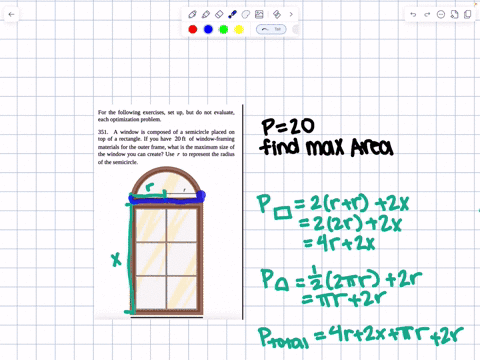 For the following exercises, set up, but do not evaluate,
each optimization problem.
351. A window is composed of a semicircle placed on
top of a rectangle. If you have 20 ft of window-framing
materials for the outer frame, what is the maximum size of
the window you can create? Use r to represent the radius
of the semicircle.
r
r
x
P=20
find max Area
P□ = 2(r+r) + 2x
= 2(2r) + 2x
= 4r + 2x
P⌓ = 1/2(2πr) + 2r
= πr + 2r
Ptotal = 4r + 2x + πr + 2r